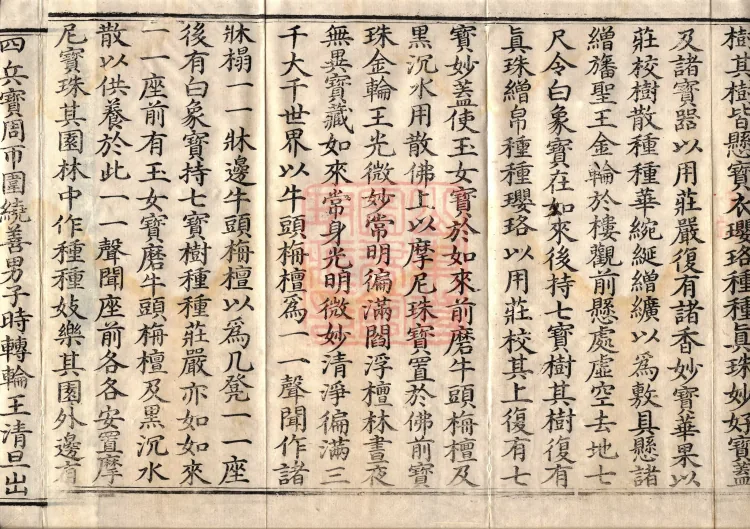 樹其樹皆懸寶衣瓔珞種種眞珠妙好寶蓋
及諸寶器以用莊嚴復有諸香妙寶華果以
莊校樹散種種華綩綖繒纊以爲敷具懸諸
繒旛聖王金輪於樓觀前懸處虛空去地七
尺令白象寶在如來後持七寶樹其樹復有
眞珠繒帛種種瓔珞以用莊校其上復有七
寶妙蓋使玉女寶於如來前磨牛頭栴檀及
黑沉水用散佛上以摩尼珠寶置於佛前寶
珠金輪王光微妙常明徧滿閻浮檀林晝夜
無異寶藏如來常身光明微妙清淨徧滿三
千大千世界以牛頭栴檀爲一一聲聞作諸
牀榻一一牀邊牛頭栴檀以爲几凳一一座
後有白象寶持七寶樹種種莊嚴亦如如來
一一座前有玉女寶磨牛頭栴檀及黑沉水
散以供養於此一一聲聞座前各各安置摩
尼寶珠其園林中作種種妓樂其園外邊有
四兵寶周帀圍繞善男子時轉輪王清旦出